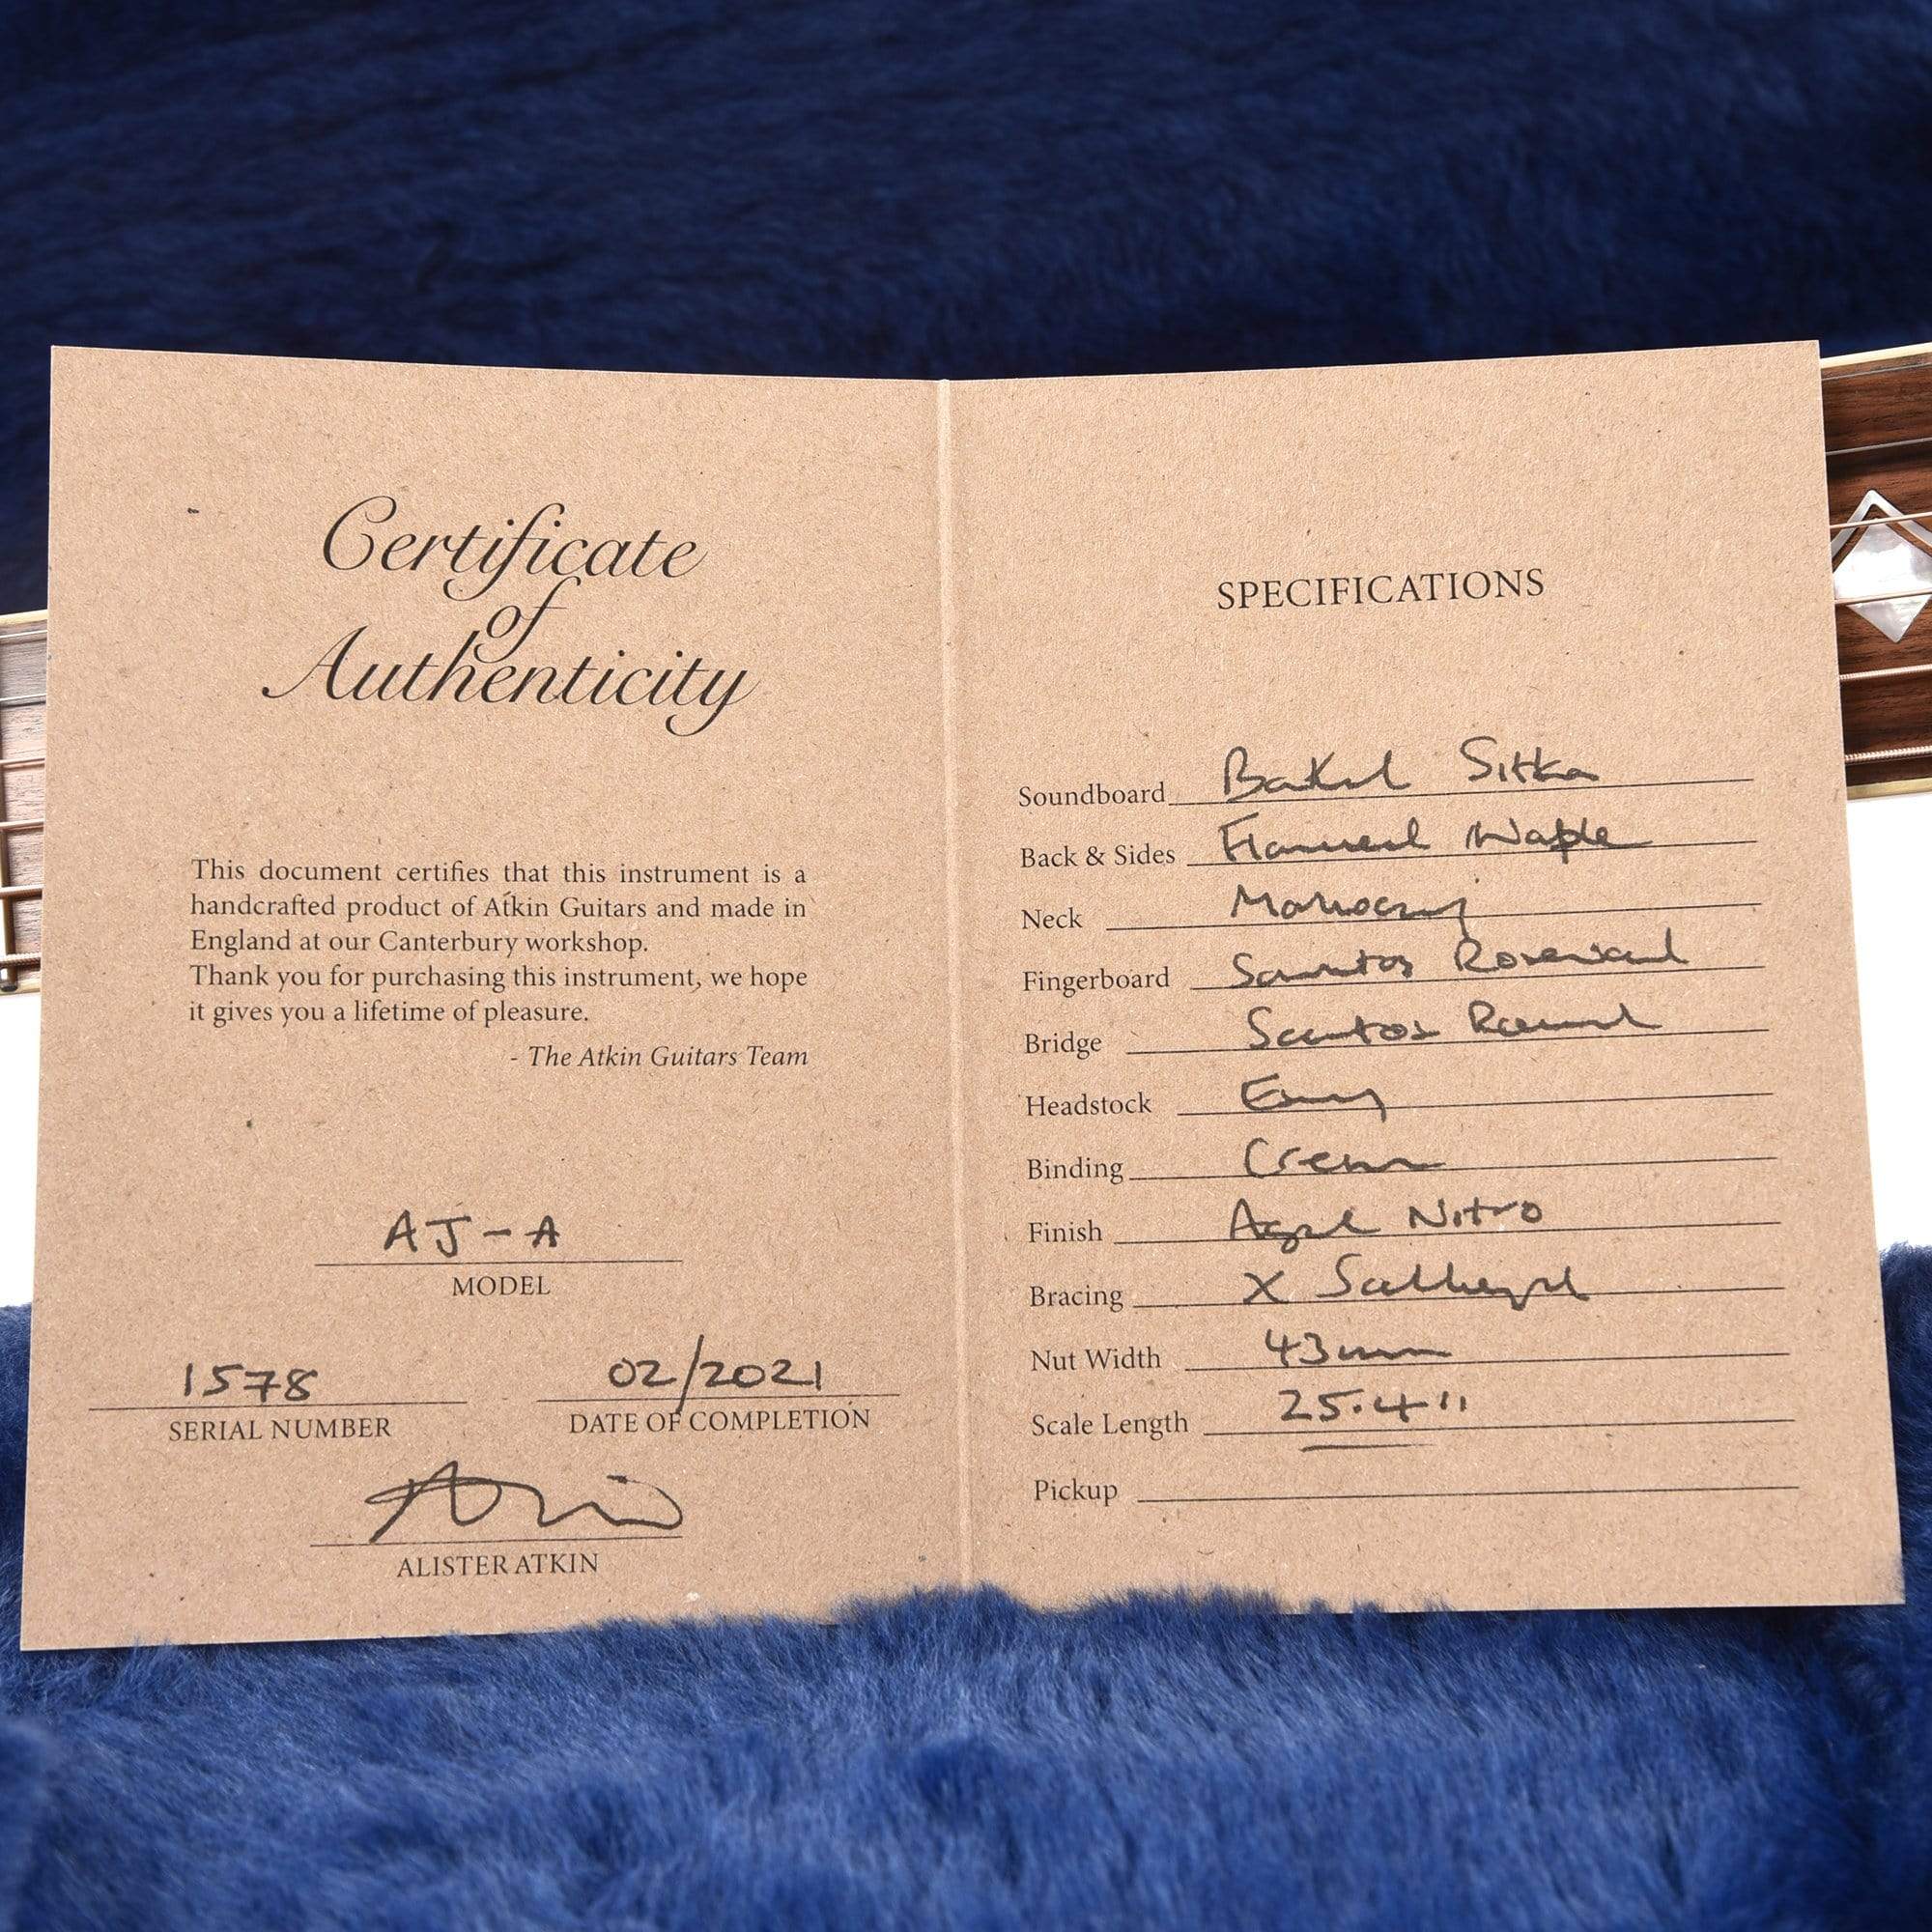 Certificate
of
Authenticity
This document certifies that this instrument is a
handcrafted product of Atkin Guitars and made in
England at our Canterbury workshop.
Thank you for purchasing this instrument, we hope
it gives you a lifetime of pleasure.
- The Atkin Guitars Team
AJ-A
MODEL
1578
SERIAL NUMBER
02/2021
DATE OF COMPLETION
ALISTER ATKIN
SPECIFICATIONS
Soundboard Baked Sitka
Back & Sides Flamed Maple
Neck Mahogany
Fingerboard Santos Rosewood
Bridge Santos Rosewood
Headstock Ebony
Binding Cream
Finish Aged Nitro
Bracing X Scalloped
Nut Width 43mm
Scale Length 25.4"
Pickup